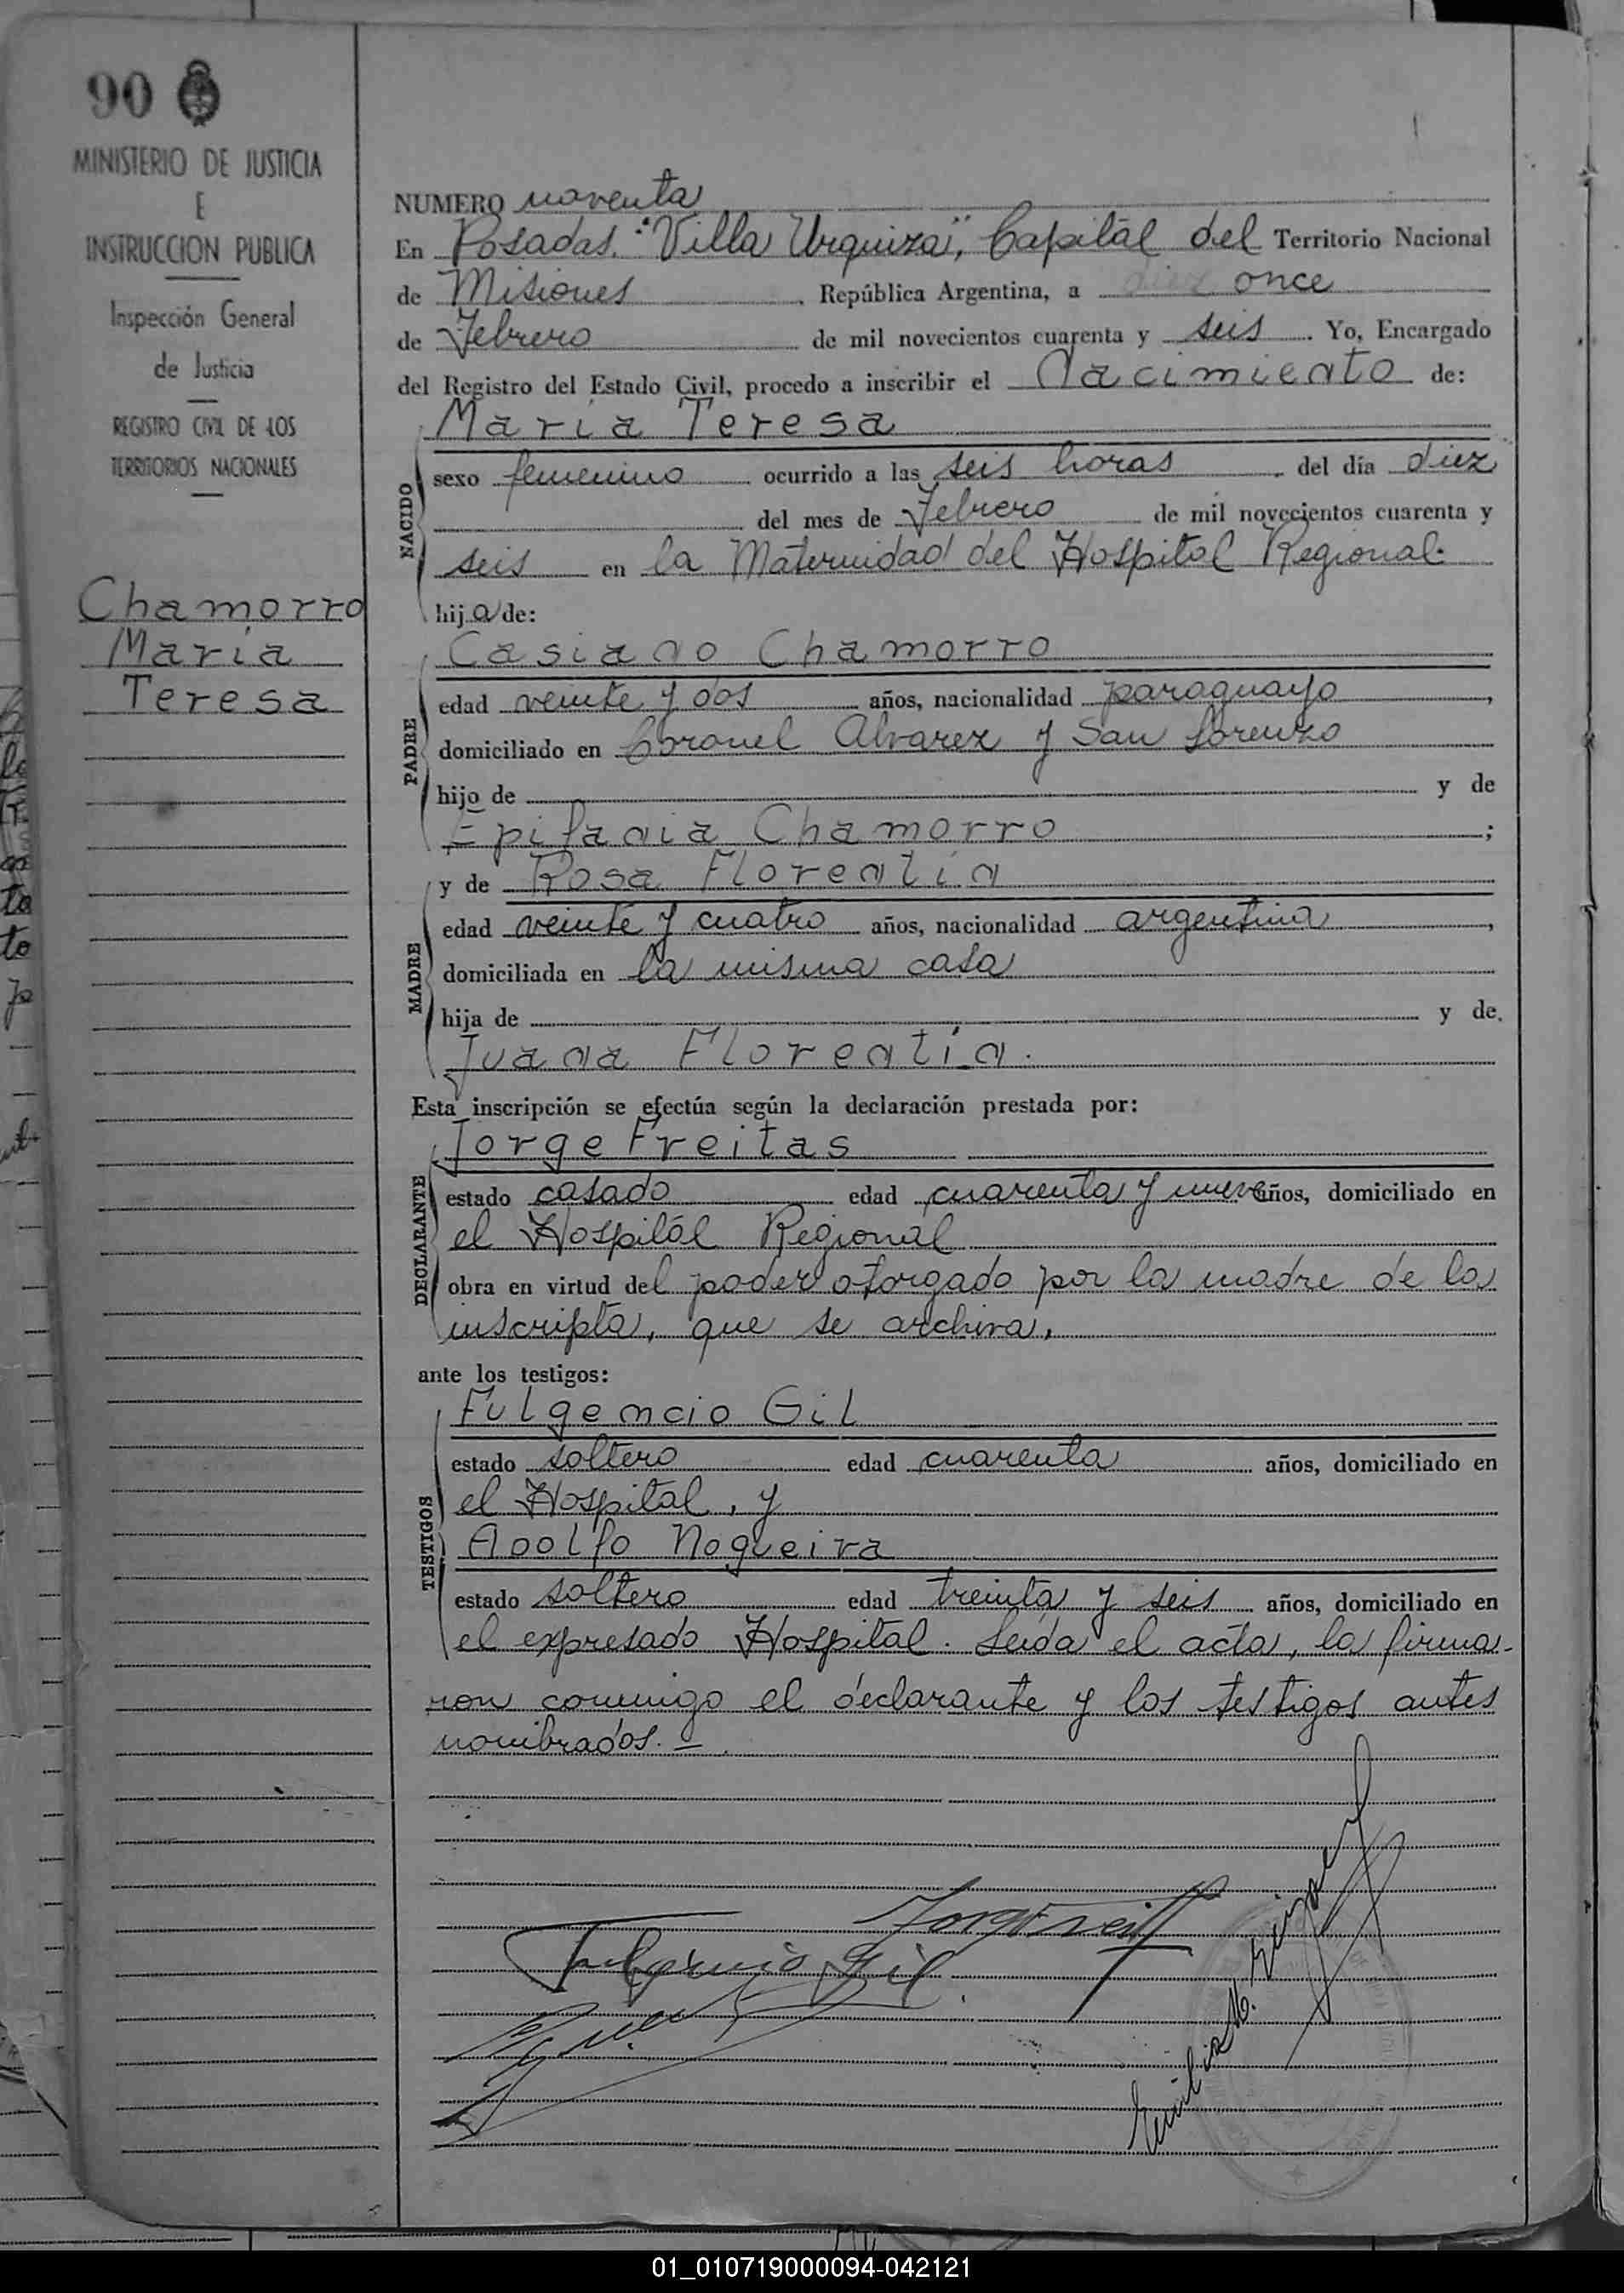 90
MINISTERIO DE JUSTICIA
E
INSTRUCCION PUBLICA
Inspección General
de Justicia
REGISTRO CIVIL DE LOS
TERRITORIOS NACIONALES
Chamorro
María
Teresa
NUMERO noventa
En Posadas. "Villa Urquiza", Capital del Territorio Nacional
de Misiones, República Argentina, a once
de Febrero de mil novecientos cuarenta y seis. Yo, Encargado
del Registro del Estado Civil, procedo a inscribir el Nacimiento de:
NACIDO
María Teresa
sexo femenino ocurrido a las seis horas, del día diez
del mes de Febrero de mil novecientos cuarenta y
seis en la Maternidad del Hospital Regional.
hija de:
PADRE
Casiano Chamorro
edad veinte y dos años, nacionalidad paraguayo,
domiciliado en Coronel Alvarez y San Lorenzo
hijo de y de
Epifania Chamorro;
MADRE
y de Rosa Florentín
edad veinte y cuatro años, nacionalidad argentina,
domiciliada en la misma casa
hija de y de
Juana Florentín.
Esta inscripción se efectúa según la declaración prestada por:
DECLARANTE
Jorge Freitas
estado casado edad cuarenta y nueve años, domiciliado en
el Hospital Regional
obra en virtud del poder otorgado por la madre de la
inscripta, que se archiva,
ante los testigos:
TESTIGOS
Fulgencio Gil
estado soltero edad cuarenta años, domiciliado en
el Hospital, y
Adolfo Nogueira
estado soltero edad treinta y seis años, domiciliado en
el expresado Hospital. Leída el acta, la firma-
ron conmigo el declarante y los testigos antes
nombrados. -
Fulgencio Gil.
01_010719000094-042121